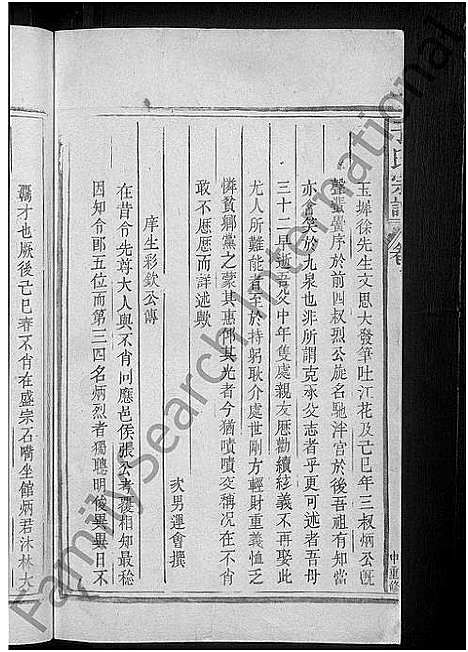 氏宗譜 卷
玉墀徐先生文思大發筆吐江花及己巳年三叔炳公旣
聲蜚黌序於前四叔烈公旋名馳泮宮於後吾祖有知當
亦含笑於九泉也非所謂克承父志者乎更可述者吾母
三十二早逝吾父中年隻處親友厯勸續絃義不再娶此
尤人所難能者至於持躬耿介處世剛方輕財重義恤乏
憐貧鄉黨之蒙其惠邮其光者今猶嘖嘖交稱况在不肖
敢不厯厯而詳述歟
次男運會撰
庠生彩欽公傳
在昔令先尊大人與不肖同應邑侯張公考覆相知最稔
因知令郎五位而第三四名炳烈者獨聰明俊異異日不
羈才也厥後己巳春不肖在盛宗石嘴坐館炳君沐林大
中重修
FamilySearch International